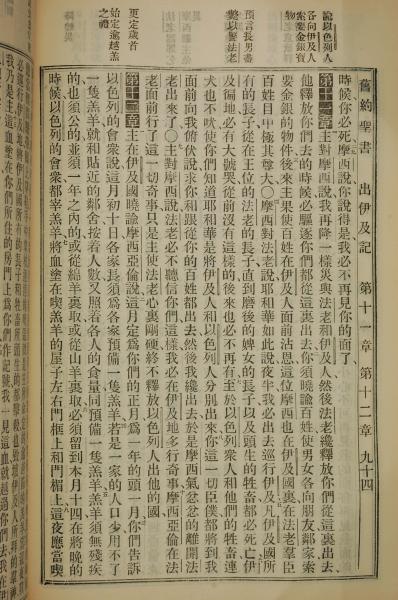 舊約聖書 出伊及記 第十一章 第十二章 九十四
諭以色列人
各向伊及人
索要金銀寶
物
預言長男盡
斃以警法老
更定歲首
始定逾越羔
之禮
時候你必死摩西說你說得是我必不再見你的面了
第十一章主對摩西說我再降一樣災與法老和伊及人然後法老纔釋放你們從這裏出去
他釋放你們去的時候必驅逐你們都從這裏出去你須曉諭百姓使男女各向朋友鄰家索
要金銀的物件後來主果使百姓在伊及人面前沾恩這位摩西也在伊及國裏在法老羣臣
百姓目中極其尊大〇摩西對法老說耶和華如此說夜半我必出去巡行伊及凡伊及國所
有的長子從在王位的法老的長子直到磨後的婢女的長子以及頭生的牲畜都必死亡伊
及徧地必有大號哭從前沒有這樣的後來也必不再有至於以色列衆人和他們的牲畜連
犬也不吠使你們知道耶和華是將伊及人和以色列人分別出來你這一切臣僕都將到我
面前向我俯伏說求你和跟從你的百姓都出去然後我纔出去於是摩西氣忿忿的離開法
老出來了〇主對摩西說法老必不聽信你們這樣我必在伊及地多行奇事摩西亞倫在法
老面前行了這一切奇事只是主使法老心裏剛硬終不釋放以色列人出他的國
第十二章主在伊及國曉諭摩西亞倫說這月定爲你們的正月爲一年的頭一月你們告訴
以色列的會衆說這月初十日各家長須爲各家預備一隻羔羊若是一家的人口少用不了
一隻羔羊就和貼近的鄰舍按着人數又照着各人的食量同預備一隻羔羊羔羊須無殘疾
的也須公的並須一年之內的或從綿羊裏取或從山羊裏取必須留到本月十四在將晚的
時候以色列的會衆都宰羔羊將血塗在喫羔羊的屋子左右門框上和門楣上這夜應當喫
我乃是主這血塗在你們所住的房門上爲你們作記號我一見這血就越過你們去我在伊